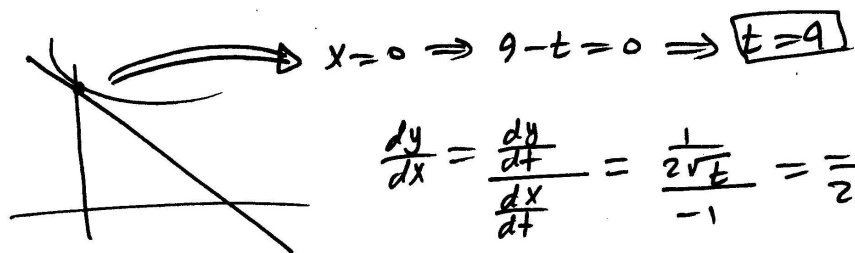 x=0 ⇒ 9-t=0 ⇒ t=9
dy/dx = (dy/dt)/(dx/dt) = (1/(2√t))/(-1) = -/2